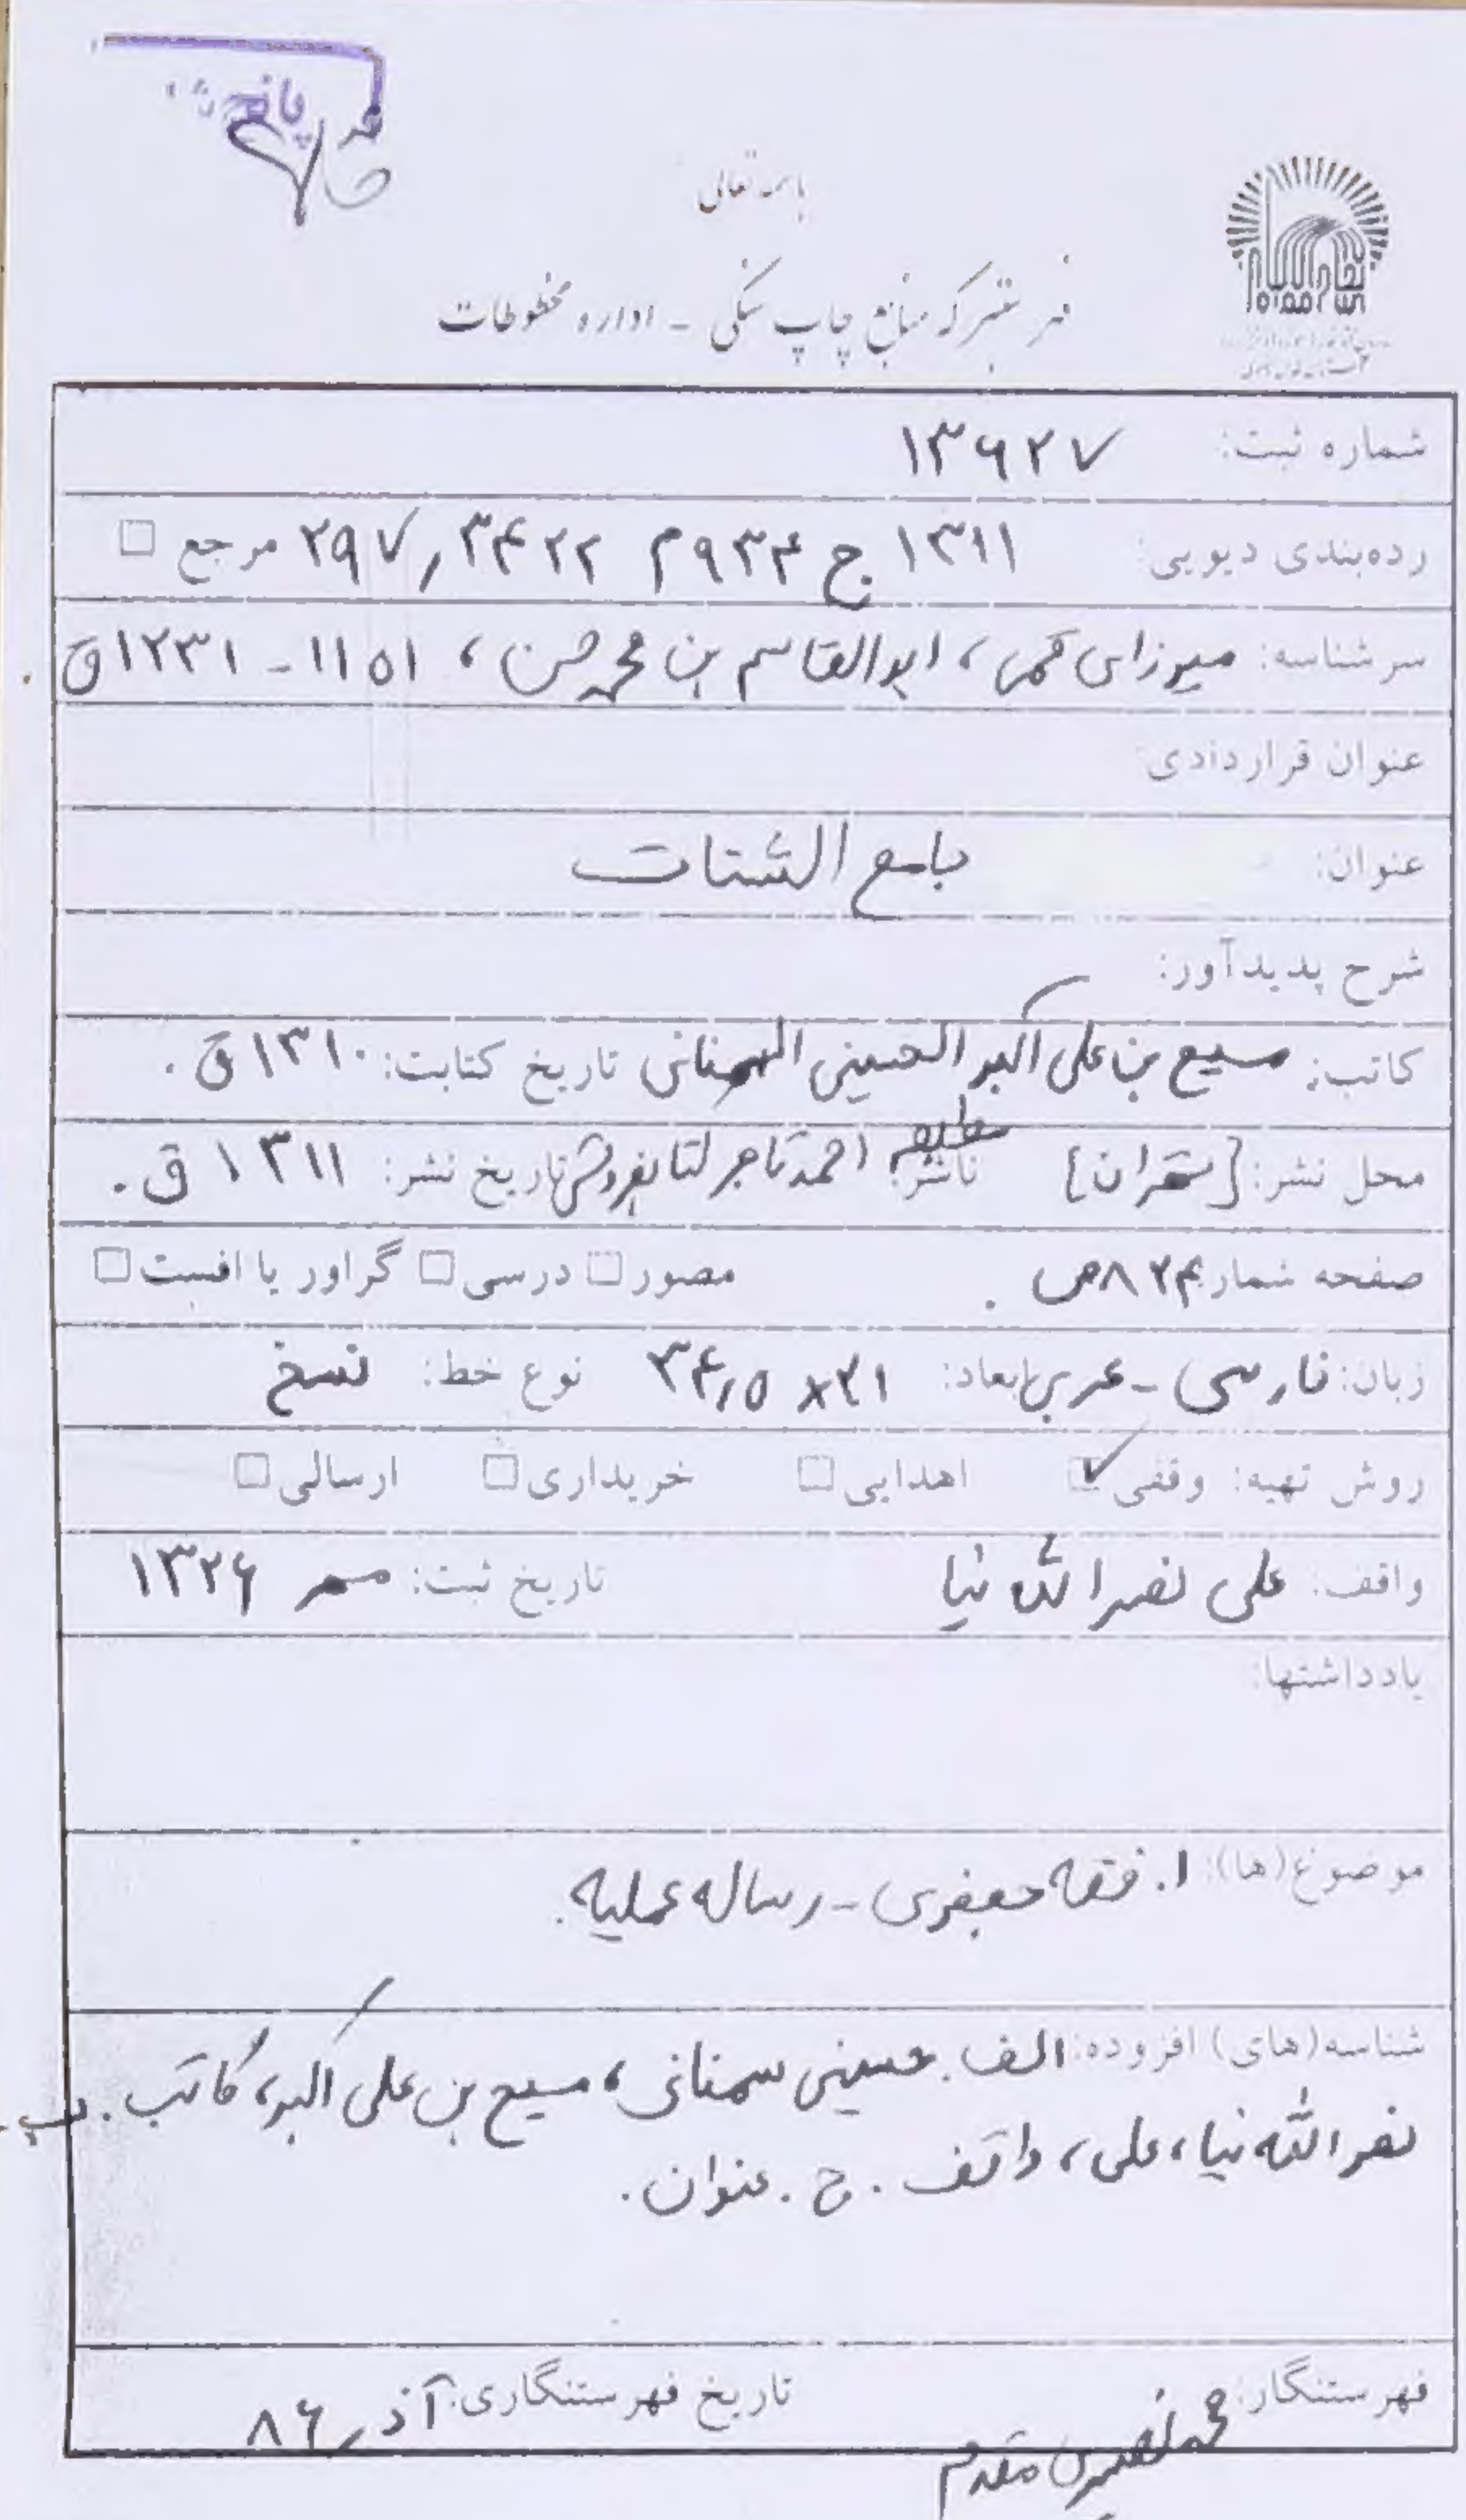 باسمه تعالی
فهرستبرگه منابع چاپ سنگی - اداره مخطوطات
شماره ثبت: ۱۳۶۲۷
رده‌بندی دیویی: ۱۳۱۱ ج ۹۳۴م ۲۹۷٫۳۴۲۲ مرجع □
سرشناسه: میرزای قمی، ابوالقاسم بن محمدحسن، ۱۱۵۱ - ۱۲۳۱ق.
عنوان قراردادی
عنوان: جامع الشتات
شرح پدیدآور:
کاتب: مسیع بن علی اکبر الحسینی السمنانی تاریخ کتابت: ۱۳۱۰ق.
محل نشر: [تهران] ناشر: احمد تاجر کتابفروش تاریخ نشر: ۱۳۱۱ ق.
صفحه شمار: ۸۲۴ص. مصور□ درسی□ گراور یا افست□
زبان: فارسی - عربی ابعاد: ۲۱×۳۴٫۵ نوع خط: نسخ
روش تهیه: وقفی☑ اهدایی□ خریداری□ ارسالی□
واقف: علی نصرالله نیا تاریخ ثبت: مهر ۱۳۲۶
یادداشتها:
موضوع(ها): ۱. فقه جعفری - رساله عملیه.
شناسه(های) افزوده: الف. حسینی سمنانی، مسیع بن علی اکبر، کاتب. ب.
نصرالله نیا، علی، واقف. ج. عنوان.
فهرستنگار: محمد نصیری مقدم تاریخ فهرستنگاری: آذر ۸۶